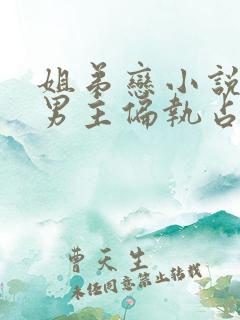 姐弟戀小說
男主偏執占
曹天生
未经同意禁止转载